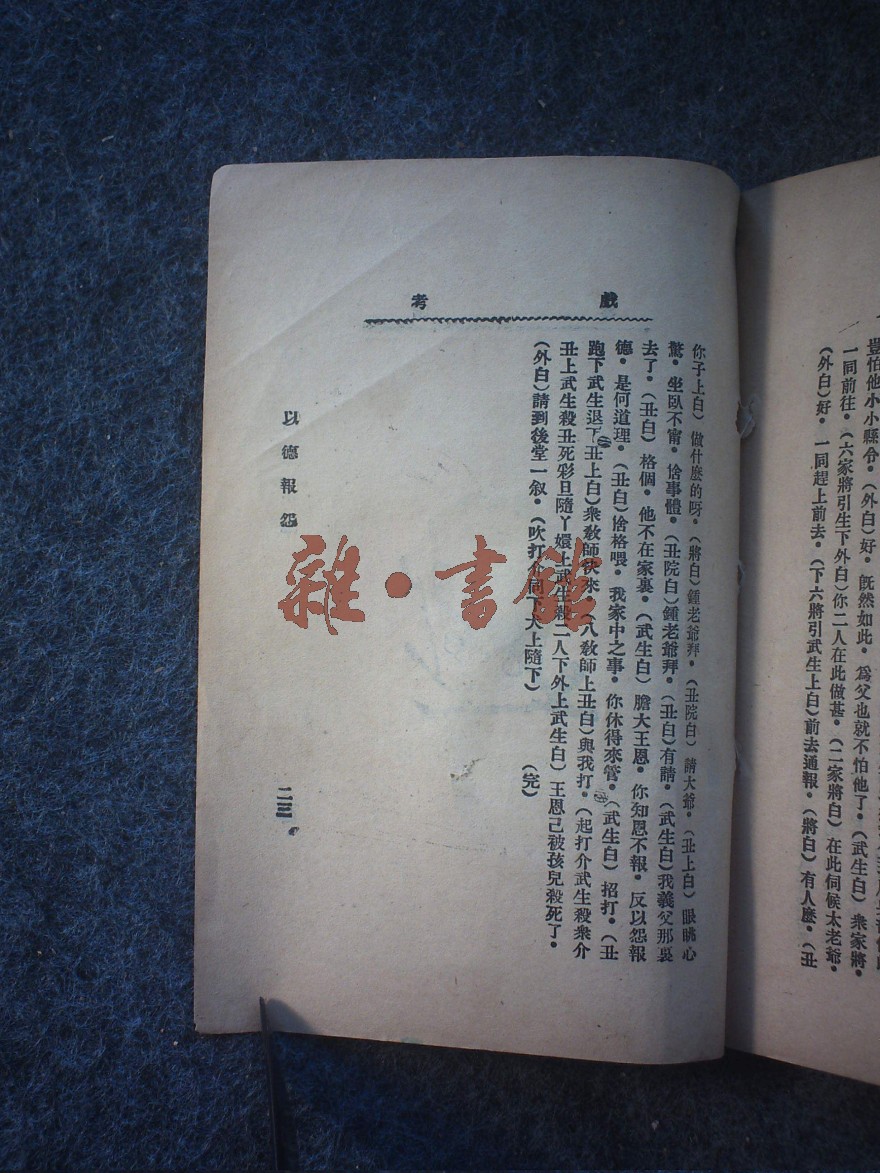 豈怕他小小縣令。（外白）好。既然如此。爲父也就不怕他了。（武生白）衆家將。
一同前往。（六家將引生下外白）你二人在此做甚。（二家將白）在此伺候太老爺。
（外白）好。一同趕上前去。（下六將引武生上白）前去通報。（將白）有人麽。（丑
戲考
你子上白）做什麽的呀。（將白）鍾老爺拜。（丑院白）請大爺。（丑上白）眼眺心
驚。坐臥不甯。捨事體。（丑院白）鍾老爺拜。（丑白）有請。（武生白）我義父那裏
去了。（丑白）格個。他不在家裏。（武生白）膽大王恩。你知恩不報。反以怨報
德。是何道理。（丑白）捨格喂。我家中之事。你休得來管。（武生白）招打。（丑
跑下武生退下丑上白）衆敎師快來。（八敎師上丑白）與我打。（起打介武生殺衆介
丑上武生殺丑死彩旦隨丫嬛上武生殺二人下外上武生白）王恩已被孩兒殺死了。
（外白）請到後堂一叙。（吹打介同下大上隨下）（完）
以德報怨
二三
雜·書館